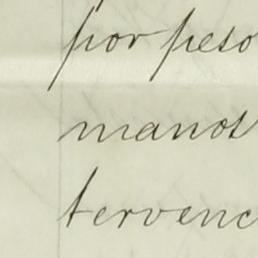 por peso
manos
tervenc